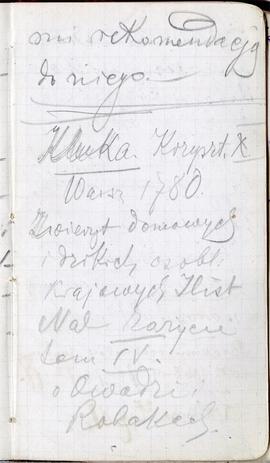 mi rekomendację
do niego.
Kluka. Krzyszt. X
Warsz 1780.
Zwierząt domowych
i dzikich, osobl.
krajowych Hist
Nat
tom IV.
o Owadzi
Robakach.